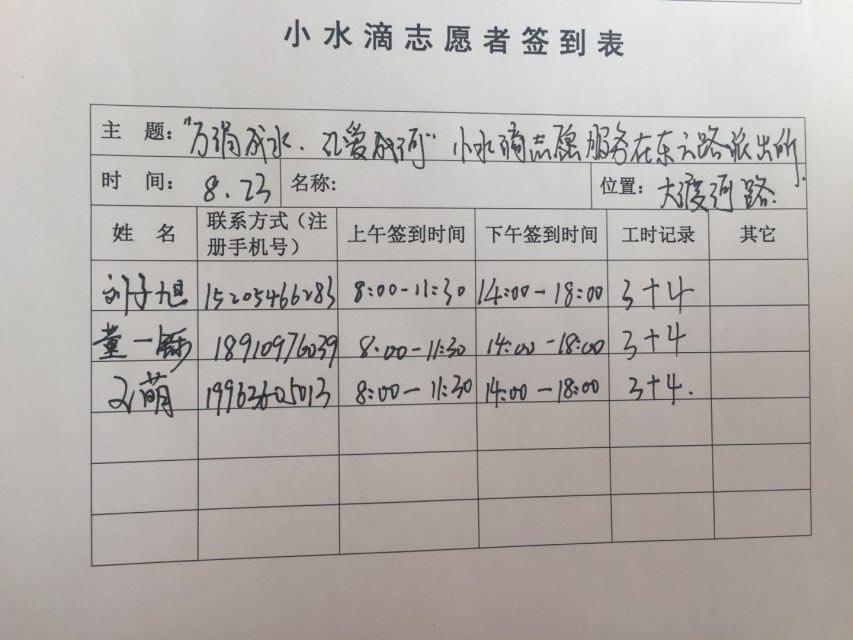 小水滴志愿者签到表
主 题: "万涓成水．汇爱成河" 小水滴志愿服务在东三路派出所.
时 间: 8.23 名称: 位置: 大渡河路.
姓 名 联系方式（注册手机号） 上午签到时间 下午签到时间 工时记录 其它
刘子旭 15205466283 8:00-11:30 14:00-18:00 3+4
董一 18910976039 8:00-11:30 14:00-18:00 3+4
萌 19963605013 8:00-11:30 14:00-18:00 3+4.